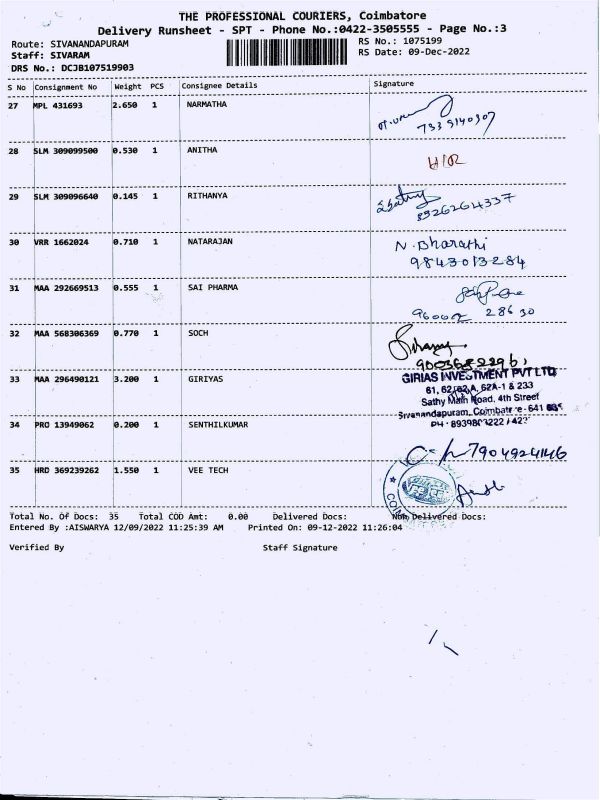 THE PROFESSIONAL COURIERS, Coimbatore
Delivery Runsheet - SPT - Phone No.:0422-3505555 - Page No.:3
Route: SIVANANDAPURAM RS No.: 1075199
Staff: SIVARAM RS Date: 09-Dec-2022
DRS No.: DCJB107519903
S No Consignment No Weight PCS Consignee Details Signature
27 MPL 431693 2.650 1 NARMATHA
7339140307
28 SLM 309099500 0.530 1 ANITHA
29 SLM 309096640 0.145 1 RITHANYA
8926264337
30 VRR 1662024 0.710 1 NATARAJAN N. Bharathi
9843013284
31 MAA 292669513 0.555 1 SAI PHARMA
28630
32 MAA 568306369 0.770 1 SOCH
33 MAA 296490121 3.200 1 GIRIYAS GIRIAS INVESTMENT PVT LTD
61, 62, 62A, 62A-1 & 233
Sathy Main Road, 4th Street
Sivanandapuram, Coimbatore - 641
34 PRO 13949062 0.200 1 SENTHILKUMAR
7904924146
35 HRD 369239262 1.550 1 VEE TECH
Total No. Of Docs: 35 Total COD Amt: 0.00 Delivered Docs: Non Delivered Docs:
Entered By :AISWARYA 12/09/2022 11:25:39 AM Printed On: 09-12-2022 11:26:04
Verified By Staff Signature